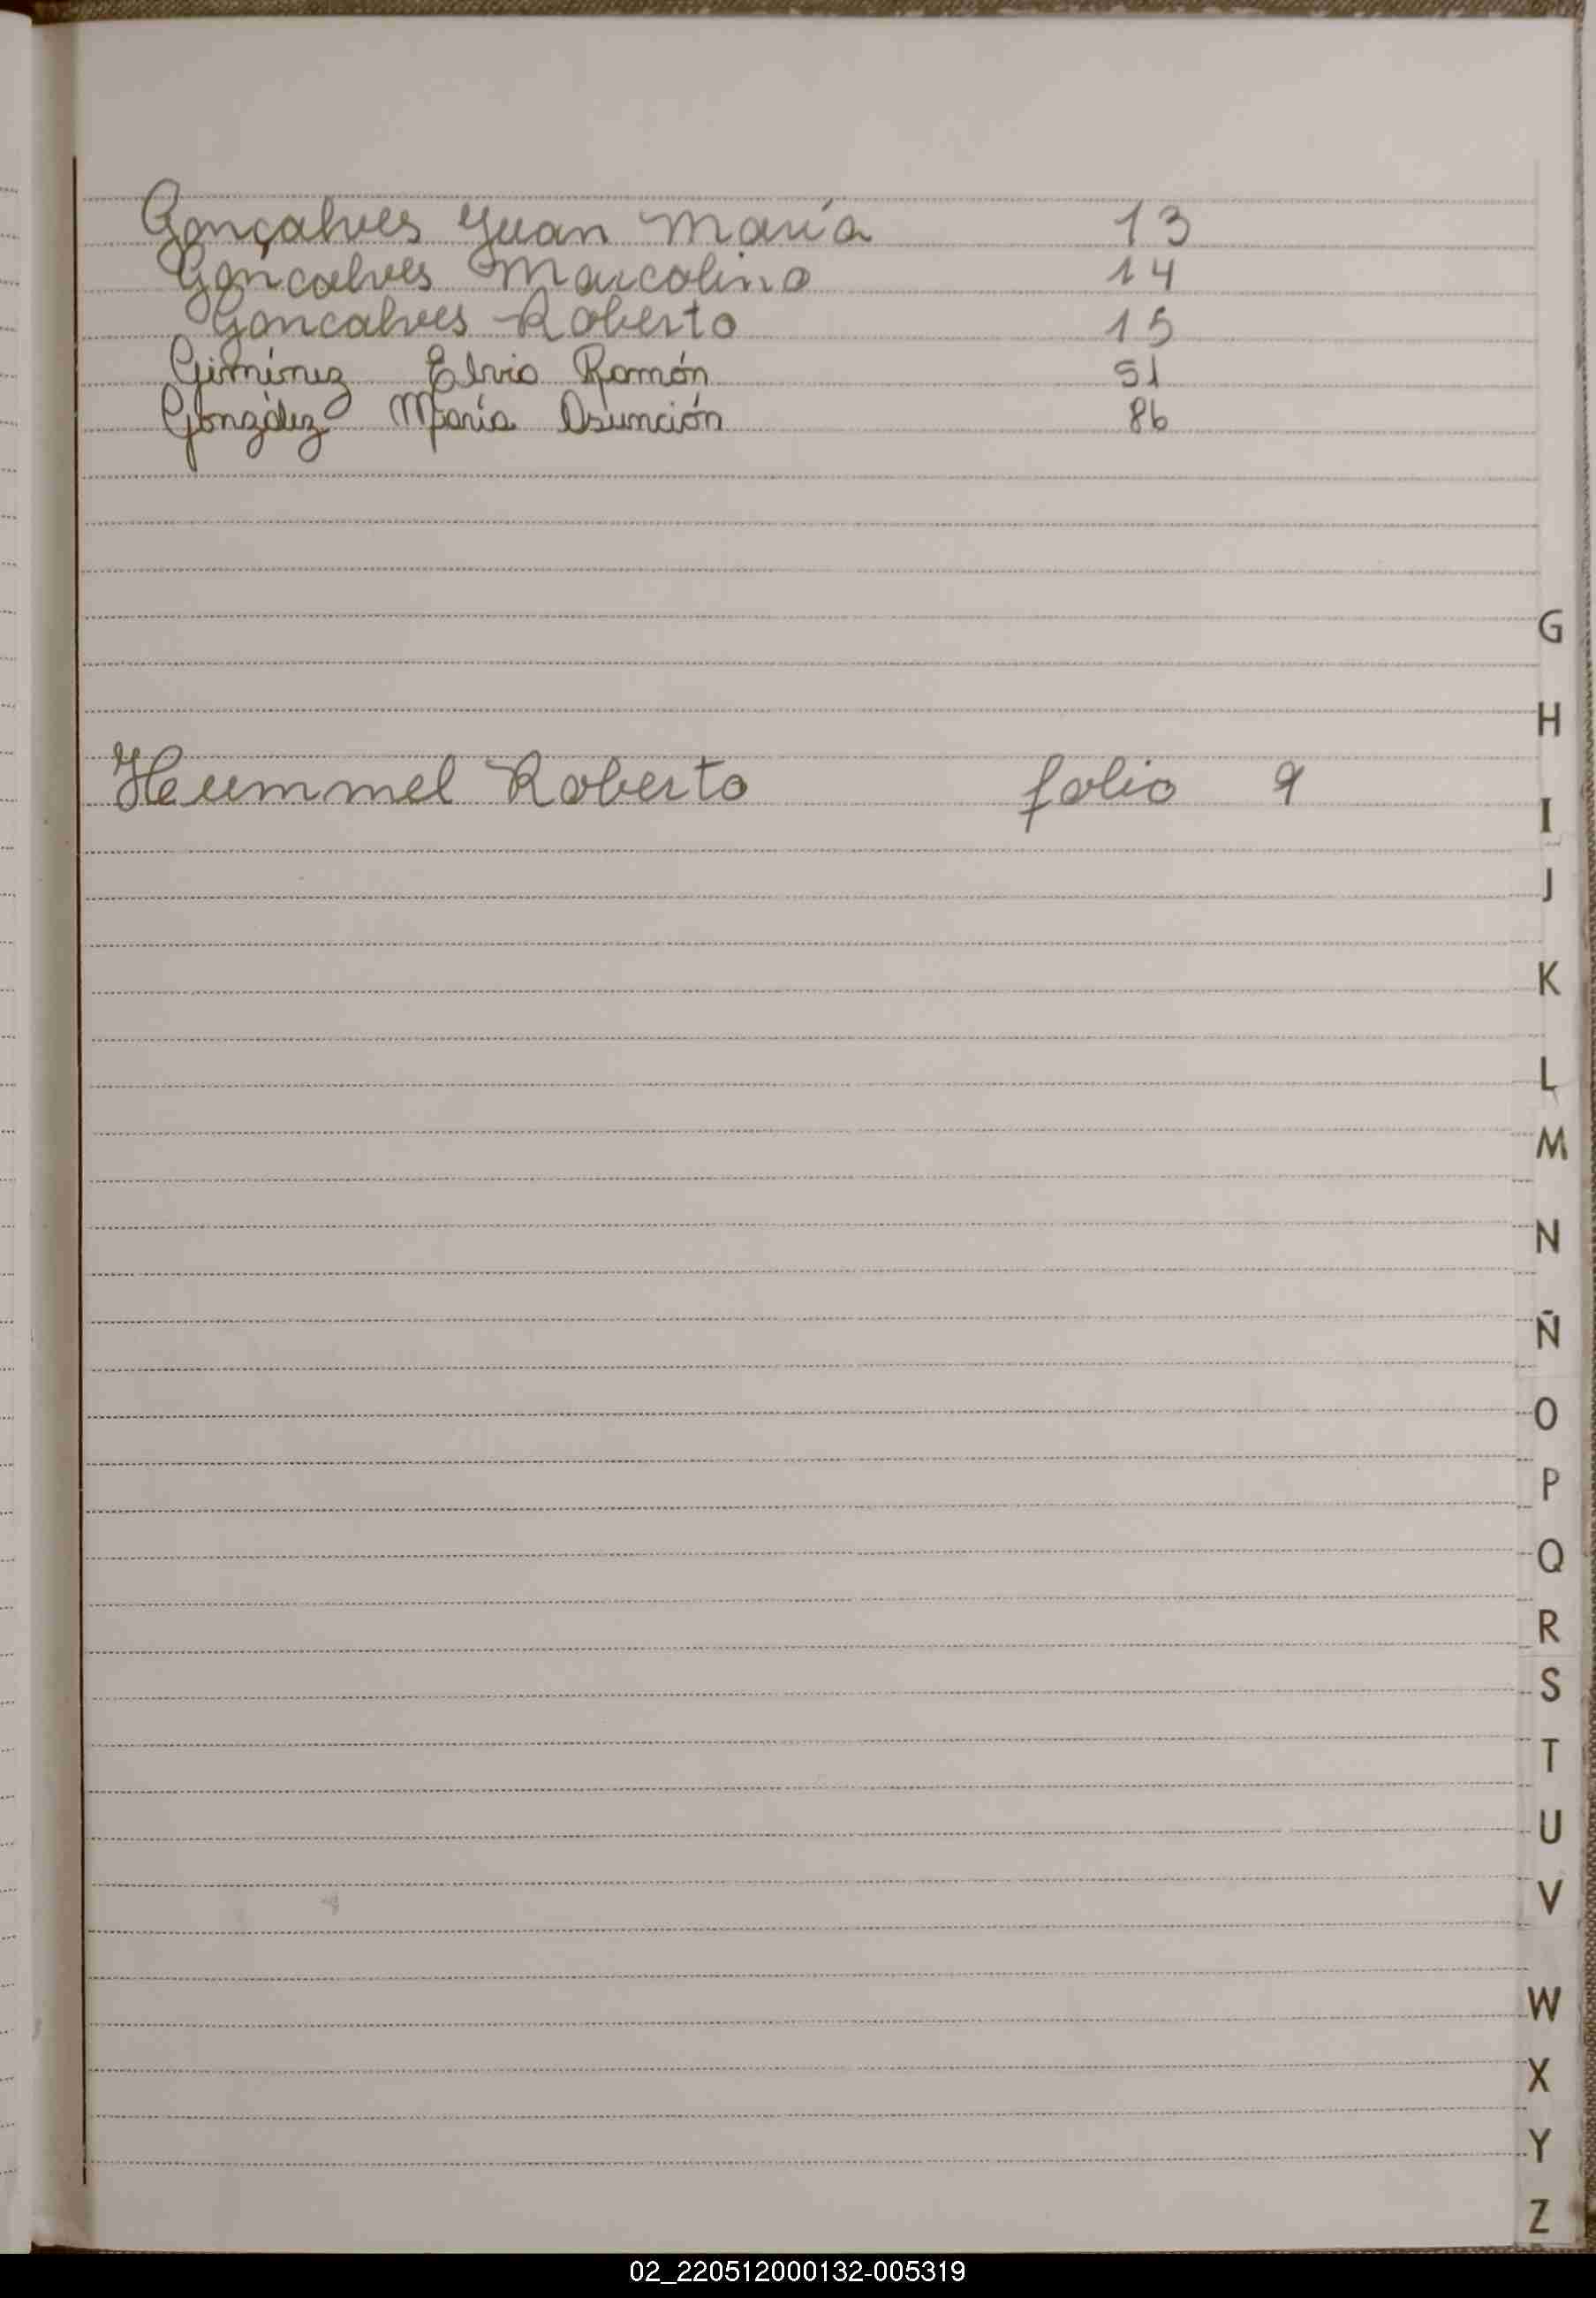 Gonçalves Juan María 13
Goncalves Marcolino 14
Goncalves Roberto 15
Giménez Elvio Ramón 51
González María Asunción 86
G
H
Hummel Roberto folio 9
I
J
K
L
M
N
Ñ
O
P
Q
R
S
T
U
V
W
X
Y
Z
02_220512000132-005319